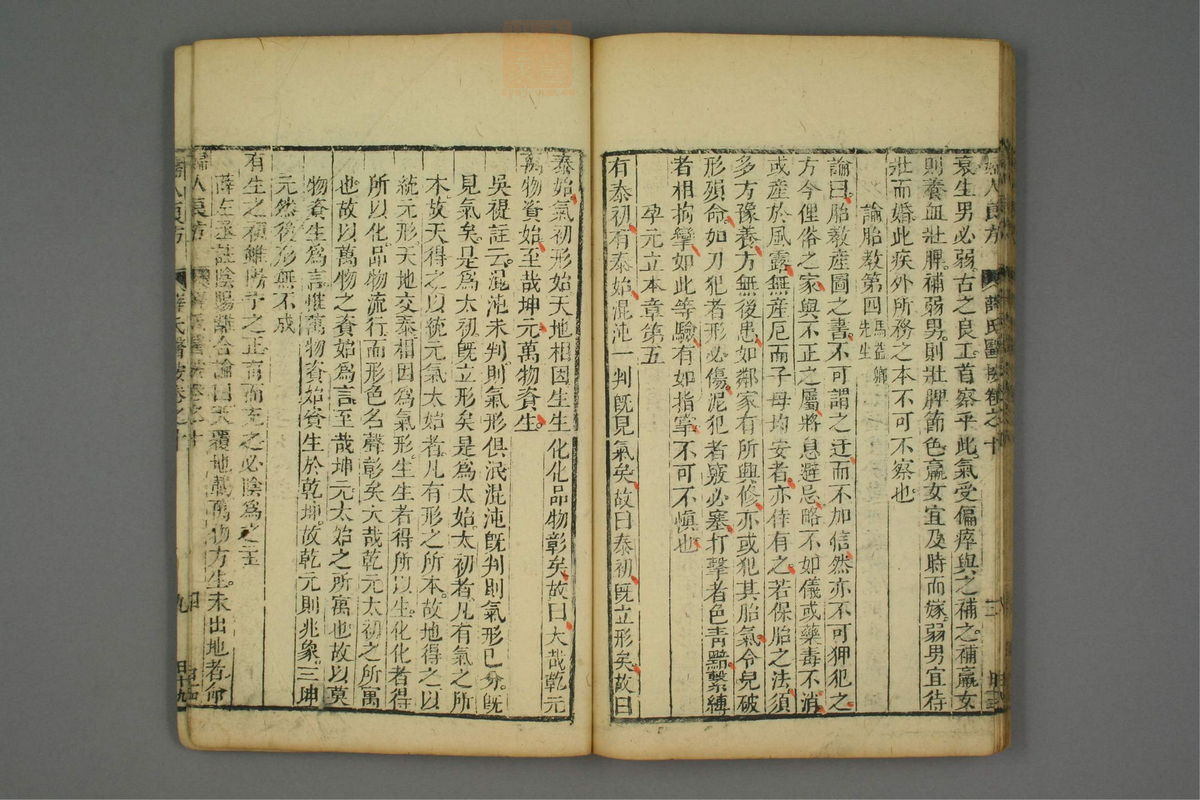 婦人良方 薛氏醫按卷之十
衰生男必弱古之良工首察乎此氣受偏瘁與之補之補羸女
則養血壯脾補弱男則壯脾節色羸女宜及時而嫁弱男宜待
壯而婚此疾外所務之本不可不察也
論胎教第四 馬益卿先生
論曰胎教産圖之書不可謂之迂而不加信然亦不可狎犯之
方今俚俗之家與不正之屬將息避忌略不如儀或藥毒不消
或産於風露無産厄而子母均安者亦倖有之若保胎之法須
多方豫養方無後患如鄰家有所興修亦或犯其胎氣令兒破
形殞命如刀犯者形必傷泥犯者竅必塞打擊者色青黯繫縛
者相拘攣如此等驗有如指掌不可不愼也
孕元立本章第五
有泰初有泰始混沌一判旣見氣矣故曰泰初旣立形矣故曰
泰始氣初形始天地相因生生化化品物彰矣故曰大哉乾元
萬物資始至哉坤元萬物資生
吳禔註云混沌未判則氣形俱泯混沌旣判則氣形已分旣
見氣矣是爲太初旣立形矣是爲太始太初者凡有氣之所
本故天得之以統元氣太始者凡有形之所本故地得之以
統元形天地交泰相因爲氣形生生者得所以生化化者得
所以化品物流行而形色名聲彰矣大哉乾元太初之所寓
也故以萬物之資始爲言至哉坤元太始之所寓也故以萬
物資生爲言惟萬物資始資生於乾坤故乾元則兆象三坤
元然後形無不成
有生之初雖陽予之正育而充之必陰爲之主
薛左丞註陰陽離合論曰天覆地載萬物方生未出地者命
婦人良方 薛氏醫按卷之十 九